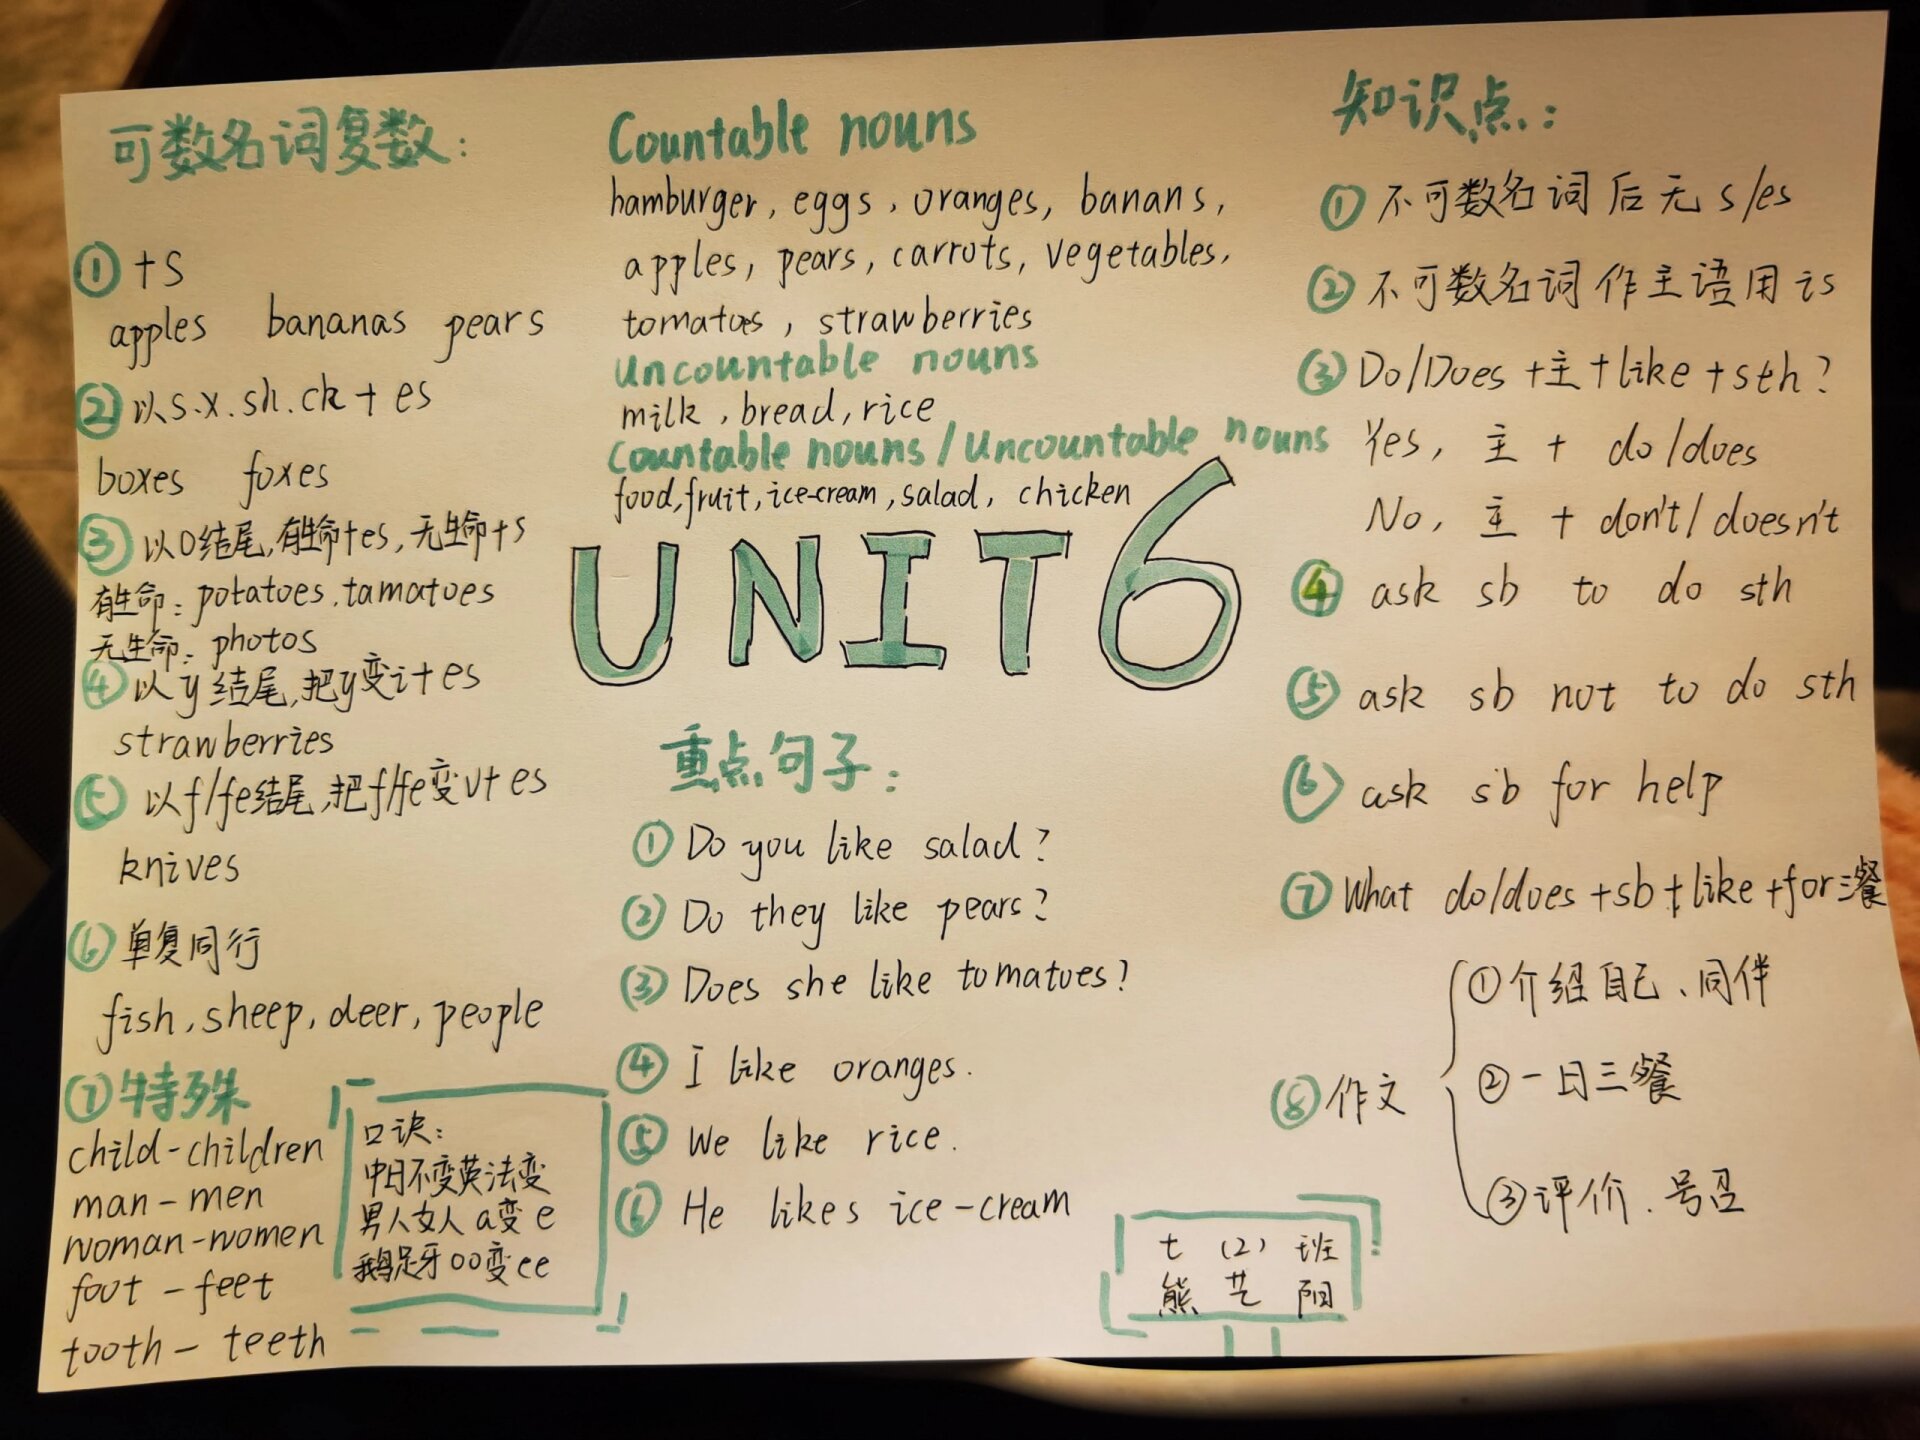 可数名词复数:
① +s
apples bananas pears
② 以s.x.sh.ck+es
boxes foxes
③ 以O结尾,有生命+es,无生命+s
有生命:potatoes.tamatoes
无生命:photos
④ 以y结尾,把y变i+es
strawberries
⑤ 以f/fe结尾,把f/fe变v+es
knives
⑥ 单复同行
fish,sheep,deer,people
⑦ 特殊
child-children
man-men
woman-women
foot-feet
tooth-teeth
口诀:
中日不变英法变
男人女人a变e
鹅足牙oo变ee
Countable nouns
hamburger, eggs, oranges, banans,
apples, pears, carrots, vegetables,
tomatoes, strawberries
Uncountable nouns
milk, bread, rice
Countable nouns / Uncountable nouns
food,fruit,ice-cream,salad, chicken
UNIT6
重点句子:
① Do you like salad?
② Do they like pears?
③ Does she like tomatoes?
④ I like oranges.
⑤ We like rice.
⑥ He likes ice-cream
知识点:
① 不可数名词后无s/es
② 不可数名词作主语用is
③ Do/Does+主+like+sth?
Yes, 主 + do/does
No, 主 + don't/doesn't
④ ask sb to do sth
⑤ ask sb not to do sth
⑥ ask sb for help
⑦ What do/does+sb+like+for三餐
⑧ 作文
① 介绍自己、同伴
② 一日三餐
③ 评价.号召
七(2)班
熊艺阳